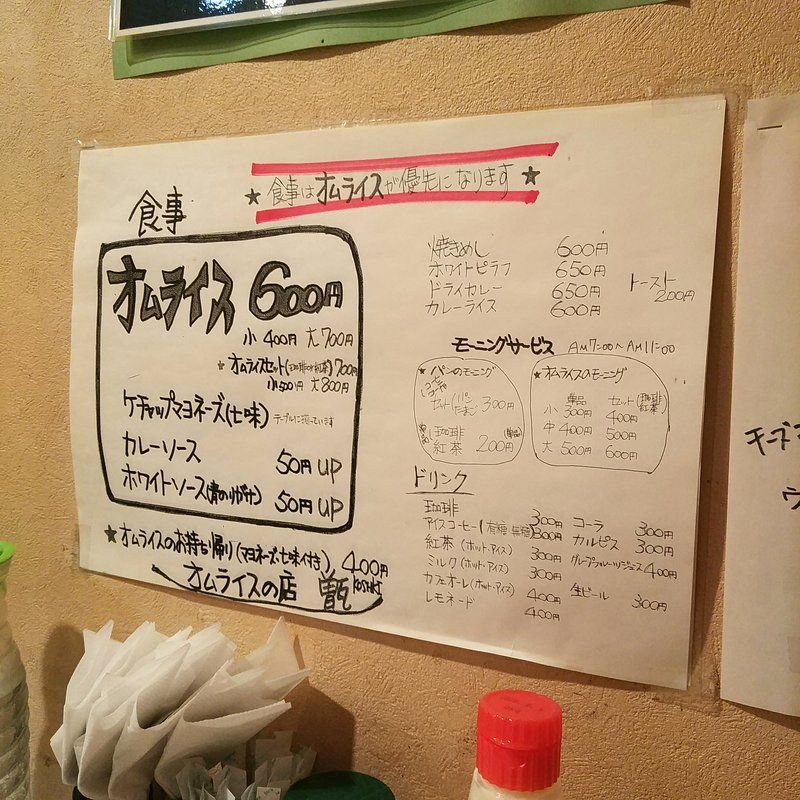 ★食事はオムライスが優先になります★
食事
オムライス 600円
小 400円 大700円
★オムライスセット(珈琲or紅茶)700円
小500円 大800円
ケチャップマヨネーズ(七味)
カレーソース 50円UP
ホワイトソース(青のりがけ) 50円UP
★オムライスのお持ち帰り(マヨネーズ・七味付き) 400円
オムライスの店 甑 KOSHIKI
焼きめし 600円
ホワイトピラフ 650円
ドライカレー 650円
カレーライス 600円
トースト
200円
モーニングサービス AM7:00~AM11:00
★パンのモーニング
セット(パン たまご) 300円
珈琲
紅茶 200円(単品)
★オムライスのモーニング
単品 セット(珈琲 紅茶)
小 300円 400円
中 400円 500円
大 500円 600円
ドリンク
珈琲 300円
アイスコーヒー(有糖・無糖) 300円
紅茶(ホット・アイス) 300円
ミルク(ホット・アイス) 300円
カフェオーレ(ホット・アイス) 400円
レモネード 400円
コーラ 300円
カルピス 300円
グレープフルーツジュース 400円
生ビール 300円
キープ